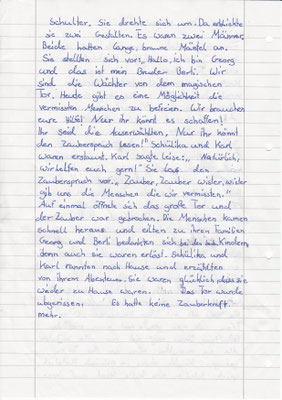 Schulter. Sie drehte sich um. Da erblickte
sie zwei Gestalten. Es waren zwei Männer.
Beide hatten lange, braune Mäntel an.
Sie stellten sich vor: „Hallo, ich bin Georg
und das ist mein Bruder Berti. Wir
sind die Wächter von dem magischen
Tor. Heute gibt es eine Möglichkeit die
vermissten Menschen zu befreien. Wir brauchen
eure Hilfe! Nur ihr könnt es schaffen!
Ihr seid die Auserwählten. Nur ihr könnt
den Zauberspruch lesen!" Schülika und Karl
waren erstaunt. Karl sagte leise: „Natürlich,
wir helfen euch gern!" Sie las den
Zauberspruch vor: „Zauber, Zauber wister, wister
gib uns die Menschen die wir vermissten."
Auf einmal öffnete sich das große Tor und
der Zauber war gebrochen. Die Menschen kamen
schnell heraus und eilten zu ihren Familien
Georg und Berti bedankten sich bei den Kindern,
denn auch sie waren erlöst. Schülika und
Karl rannten nach Hause und erzählten
von ihrem Abenteuer. Sie waren glücklich, dass sie
wieder zu Hause waren. Das Tor wurde
abgerissen. Es hatte keine Zauberkraft
mehr.